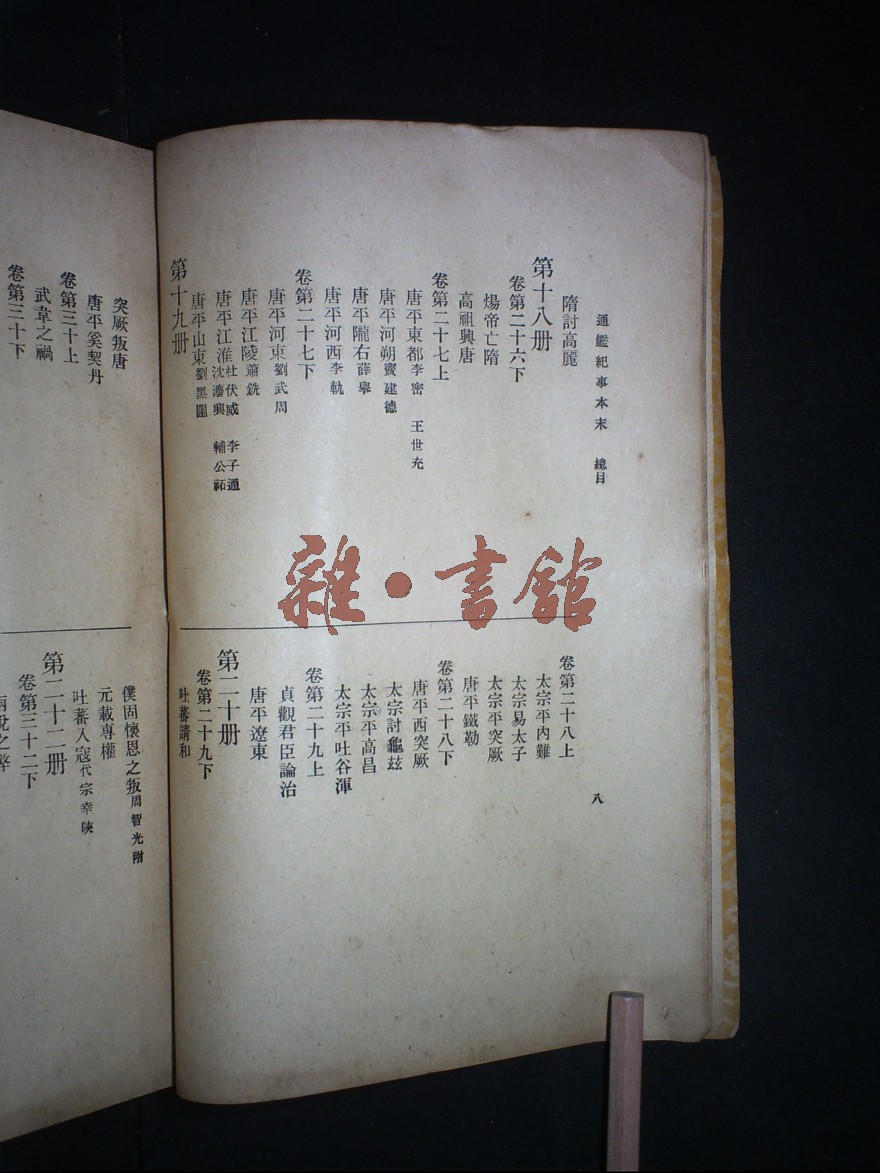 通鑑紀事本末 總目
隋討高麗
第十八册
卷第二十六下
煬帝亡隋
卷第二十七上
高祖興唐
唐平東都李密 王世充
唐平河朔竇建德
唐平隴右薛舉
唐平河西李軌
卷第二十七下
唐平河東劉武周
唐平江陵蕭銑
唐平江淮杜伏威 李子通
沈法興 輔公祏
唐平山東劉黑闥
第十九册
八
卷第二十八上
太宗平內難
太宗易太子
太宗平突厥
唐平鐵勒
卷第二十八下
唐平西突厥
太宗討龜茲
太宗平高昌
太宗平吐谷渾
卷第二十九上
貞觀君臣論治
唐平遼東
第二十册
卷第二十九下
吐蕃請和
突厥叛唐
唐平奚契丹
卷第三十上
武韋之禍
卷第三十下
僕固懷恩之叛周智光附
元載專權
吐蕃入寇代宗幸陝
第二十二册
卷第三十二下
兩稅之弊
雜·書館